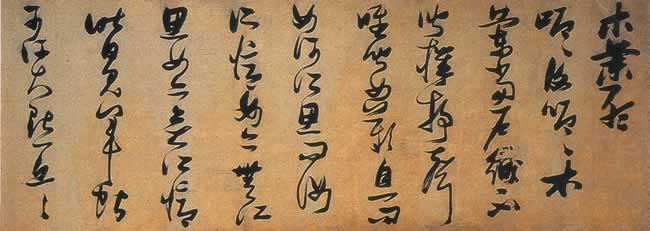 木蘭
唧〻復唧〻木
蘭當户織不
聞機杼聲
唯聞女歎息問
女何所思問汝
所憶女亦無所
思女亦無所憶
昨見軍帖
可汗大點兵